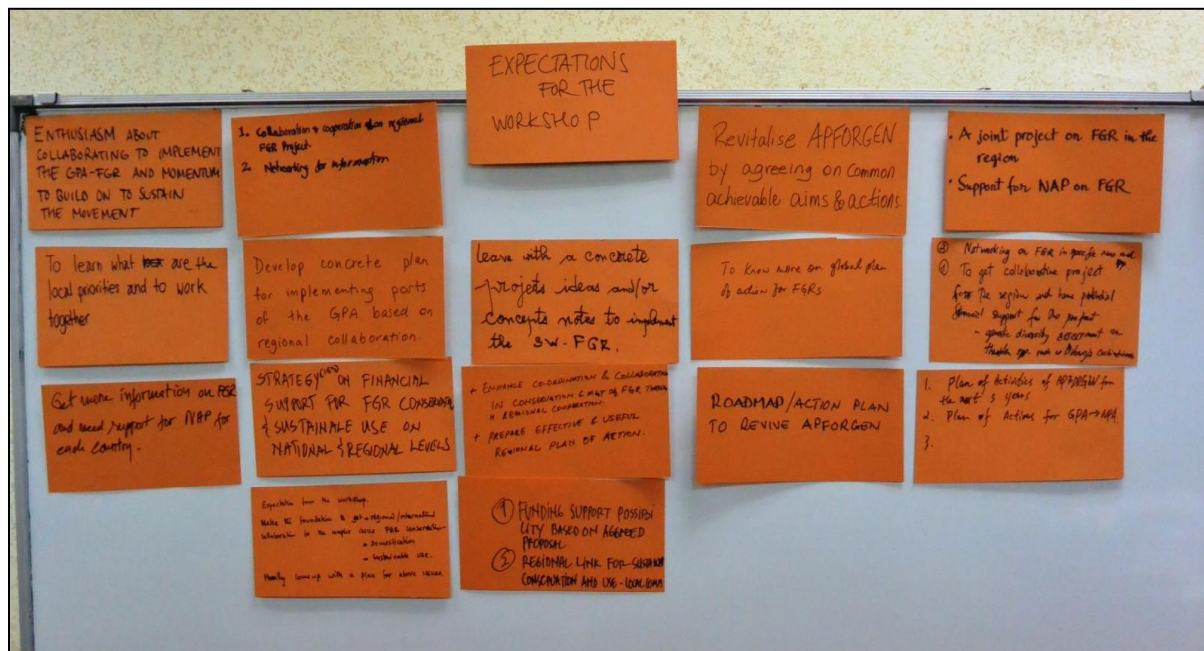 EXPECTATIONS
FOR THE
WORKSHOP
ENTHUSIASM ABOUT
COLLABORATING TO IMPLEMENT
THE GPA-FGR AND MOMENTUM
TO BUILD ON TO SUSTAIN
THE MOVEMENT
To learn what are the
local priorities and to work
together
Get more information on FGR
and need support for NAP for
each country.
1. Collaboration & cooperation on regional
FGR Project.
2. Networking for information
Develop concrete plan
for implementing parts
of the GPA based on
regional collaboration.
STRATEGY(IES) ON FINANCIAL
SUPPORT FOR FGR
& SUSTAINALE USE ON
NATIONAL & REGIONAL LEVELS
Expectation from the workshop.
Make the foundation to get regional/international
collaboration in the FGR conservation
Domestication
Sustainable use.
come up with a plan for above
Leave with a concrete
projects ideas and/or
concepts notes to implement
the SW-FGR.
+ ENHANCE CO-ORDINATION & COLLABORATION
IN CONSERVATION & MGT OF FGR THROUGH
REGIONAL COOPERATION.
+ PREPARE EFFECTIVE & USEFUL
REGIONAL PLAN OF ACTION.
① FUNDING SUPPORT POSSIBI
LITY BASED ON
PROPOSAL
② REGIONAL LINK FOR
CONSERVATION AND USE - LOCAL
Revitalise APFORGEN
by agreeing on common
achievable aims & actions
To know more on global plan
of action for FGRs
ROADMAP/ACTION PLAN
TO REVIVE APFORGEN
• A joint project on FGR in the
region
• Support for NAP on FGR
Networking on FGR in specific
To get collaborative project
for the region and have potential
financial support for the project
- genetic diversity assessment on
1. Plan of Activities of APFORGEN for
the next 5 years
2. Plan of Actions for GPA →
3.